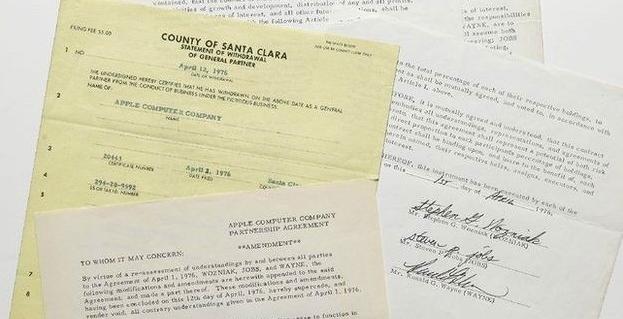 ities of growth and development, distribution of any and all profits,
of interest, and all future
the following Article
of interest.
the responsibilities
WAYNE, are to
JOBS
FILING FEE $5.00
COUNTY OF SANTA CLARA
STATEMENT OF WITHDRAWAL
OF GENERAL PARTNER
1 NO
April 12, 1976
DATE OF WITHDRAWAL
THE UNDERSIGNED HEREBY CERTIFIES THAT HE HAS WITHDRAWN ON THE ABOVE DATE AS A GENERAL
PARTNER FROM THE CONDUCT OF BUSINESS UNDER THE FICTITIOUS BUSINESS
NAME OF:
2
APPLE COMPUTER COMPANY
NAME
3
20443
CERTIFICATE NUMBER
April 2, 1976
DATE FILED
Santa Cl
COUNTY
4
5
7
8
APPLE COMPUTER COMPANY
PARTNERSHIP AGREEMENT
**AMENDMENT**
TO WHOM IT MAY CONCERN:
By virtue of a re-assessment of understandings by and between all parties
to the Agreement of April 1, 1976, WOZNIAK, JOBS, and WAYNE, the
following modifications and amendments are herewith appended to the said
Agreement, and made a part thereof. These modifications and amendments,
having been concluded on this 12th day of April, 1976, hereby supercede, and
render void, all contrary understandings given in the Agreement of April 1, 1976.
to function in
the total percentage of each of their respective holdings, to
as shall be mutually agreed, and voted to, in accordance with
Article I, above.
FORE, it is mutually agreed and understood, that this contract
embodies all understandings, representations, and agreements of
that this agreement shall represent a potential of both risk
direct proportion to each participants percentage of holdings
shall be binding upon, and inure to the benefit of, each
herein named, their respective heirs, assigns, executors, and
HEREOF, this instrument has been executed by each of the
on this 1st day of April 1976.
Stephen G. Wozniak
Mr. Stephen G. Wozniak (WOZNIAK)
steven p. jobs
Mr. Steven P. Jobs (JOBS)
Mr. Ronald G. Wayne (WAYNE)